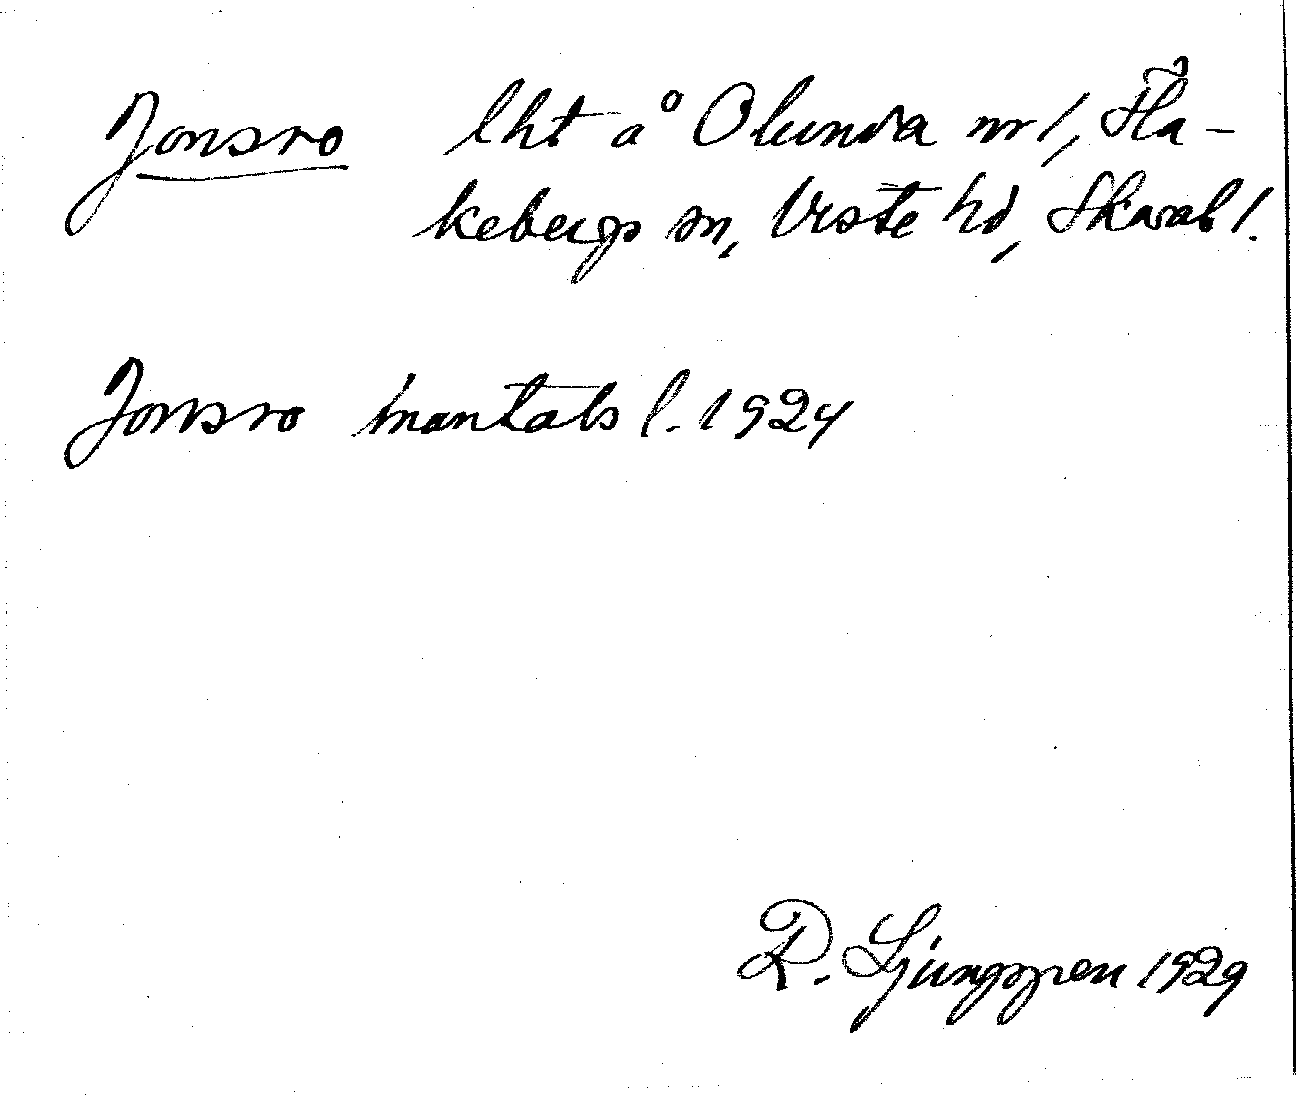 Jonsro lht å Olunda nr 1, Fla-
kebergs sn, Viste hd, Skarab l.
Jonsro mantals l. 1924
R. Ljunggren 1929